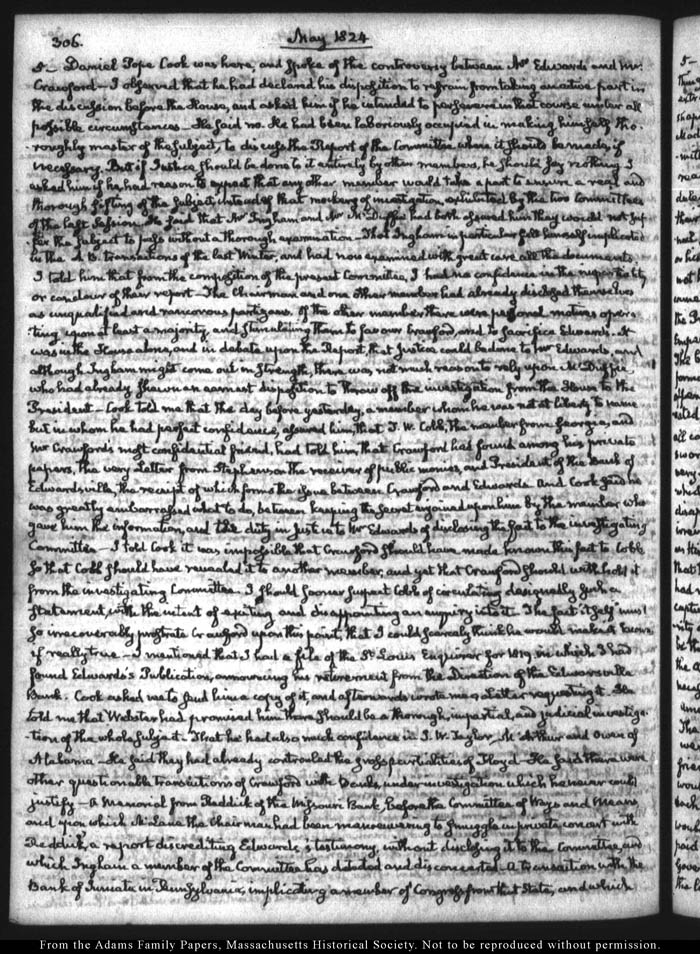 306.
May 1824
5 — Daniel Pope Cook was here, and spoke of the controversy between Mr Edwards and Mr
Crawford — I observed that he had declared his disposition to refrain from taking an active part in
the discussion before the House, and asked him if he intended to persevere in that course under all
possible circumstances — He said no. He had been laboriously occupied in making himself tho-
-roughly master of the subject, to discuss the Report of the Committee when it should be made, if
necessary. But if Justice should be done to it entirely by other members, he should say nothing. I
asked him if he had reason to expect that any other member would take a part to ensure a real and
thorough sifting of the subject, instead of that mockery of investigation, exhibited by the two Committees
of the last Session. He said that Mr Ingham and Mr McDuffie had both assured him they would not suf-
-fer the subject to pass without a thorough examination — That Ingham in particular felt himself implicated
in the A. B. transactions of the last Winter, and had now examined with great care all the documents
I told him that from the composition of the present Committee, I had no confidence in the impartiality,
or candour of their report — The Chairman and one other member had already disclosed themselves
as unqualified and rancorous partizans. Of the other members there were personal motives opera-
-ting upon at least a majority, and stimulating them to favour Crawford, and to sacrifice Edwards. It
was in the House alone, and in debate upon the Report, that Justice could be done to Mr Edwards, and
although Ingham might come out in strength, there was not much reason to rely upon McDuffie
who had already shewn an earnest disposition to throw off the investigation from the House to the
President — Cook told me that the day before yesterday, a member whom he was not at liberty to name
but in whom he had perfect confidence, assured him, that T. W. Cobb, the member from Georgia, and
Mr Crawford's most confidential friend, had told him, that Crawford had found among his private
papers, the very Letter from Stephenson the receiver of public monies, and President of the Bank of
Edwardsville, the receipt of which forms the issue between Crawford and Edwards. And Cook said he
was greatly embarrassed what to do, between keeping the secret enjoined upon him by the member who
gave him the information, and the duty in justice to Mr Edwards of disclosing the fact to the investigating
Committee — I told Cook it was impossible that Crawford should have made known this fact to Cobb
so that Cobb should have revealed it to another member, and yet that Crawford should withhold it
from the investigating Committee. I should sooner suspect Cobb of circulating designedly such a
statement, with the intent of exciting and disappointing an enquiry into it. The fact itself must
so irrecoverably prostrate Crawford upon this point, that I could scarcely think he would make it known
if really true — I mentioned that I had a file of the St. Louis Enquirer for 1819 in which I had
found Edwards's Publication, announcing his retirement from the Direction of the Edwardsville
Bank. Cook asked me to send him a copy of it, and afterwards wrote me a letter requesting it. He
told me that Webster had promised him there should be a thorough, impartial, and judicial investiga-
-tion of the whole subject — That he had also much confidence in J. W. Taylor, McArthur and Owen of
Alabama — He said they had already controuled the gross partialities of Floyd — He said there were
other questionable transactions of Crawford with Banks, under investigation which he never could
justify — A Memorial from Reddick of the Missouri Bank, before the Committee of Ways and Means,
and upon which McLane the Chairman had been manoeuvering to smuggle in private concert with
Reddick, a report discrediting Edwards's testimony, without disclosing it to the Committee, and
which Ingham a member of the Committee has detected and disconcerted. A transaction with the
Bank of Juniata in Pennsylvania, implicating a member of Congress from that State, and which
From the Adams Family Papers, Massachusetts Historical Society. Not to be reproduced without permission.